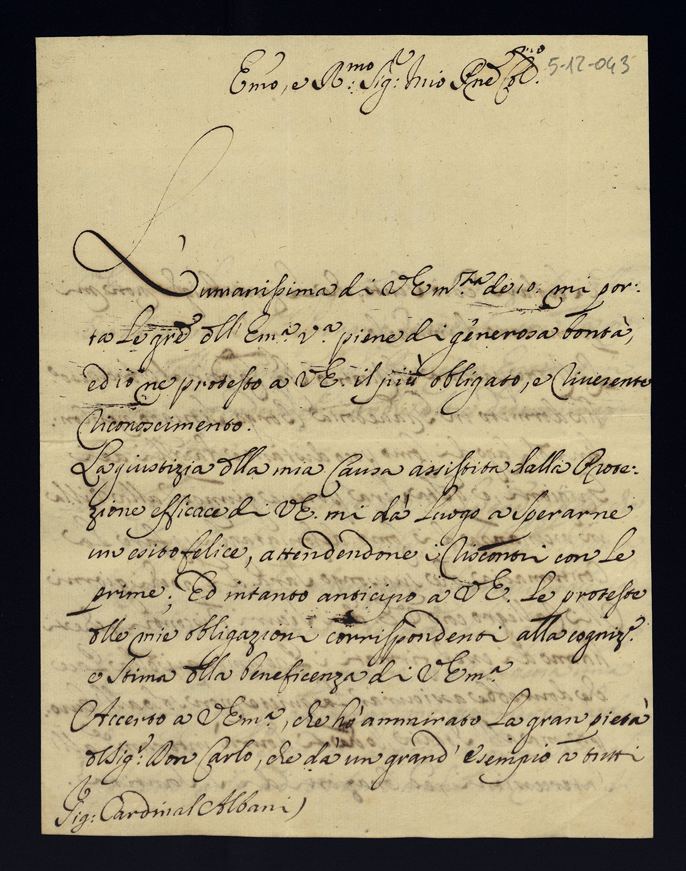 5-12-043
Emo, e Rmo: Sigr: Mio Pne Colmo.
L'umanissima di V Em.za de 10: mi por:
ta le gre dll'Em.a V.a piene di generosa bontà,
ed io ne protesto a VE. il più obligato, e riverente
riconoscimento.
La giustizia dlla mia Causa assistita dalla Prote:
zione efficace di VE. mi dà luogo a sperarne
un esito felice, attendendone i riscontri con le
prime; Ed intanto anticipo a VE. le proteste
dlle mie obligazioni corrispondenti alla cogniz.e
e stima dlla beneficenza di VEm.a
Accerto a VEm.a, che hò ammirato la gran pietà
dl Sig.r Don Carlo, che da un grand'esempio à tutti
Sigr: Cardinal Albani)